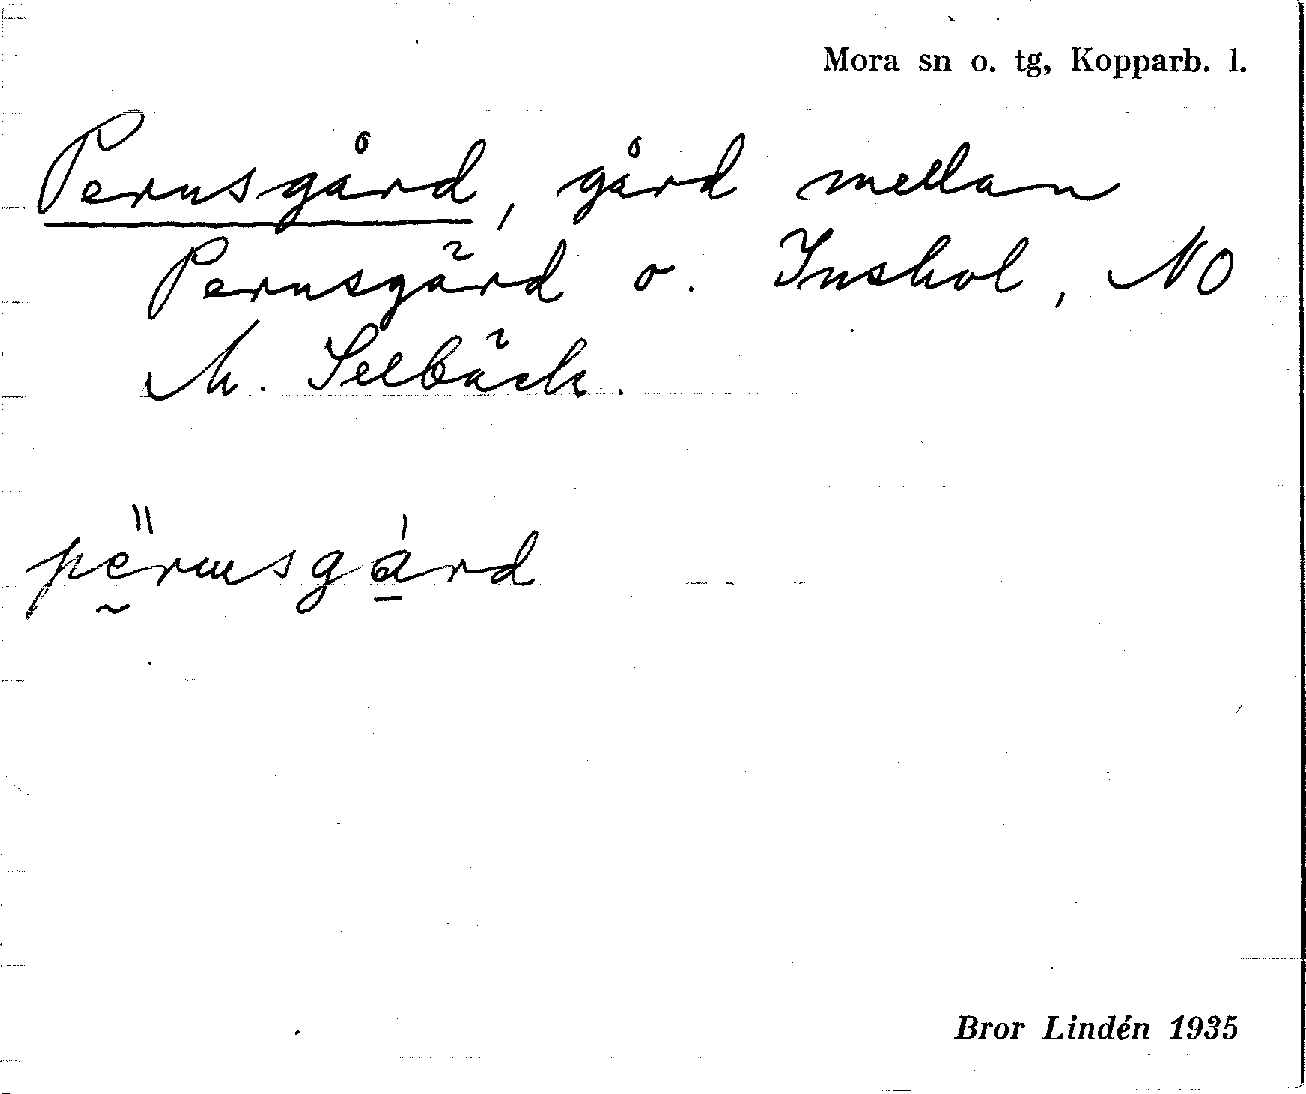 Mora sn o. tg, Kopparb. l.
Pernsgård, gård mellan
Pernsgärd o. Inshol, NO
M. Selbäck.
pernsgård
Bror Lindén 1935